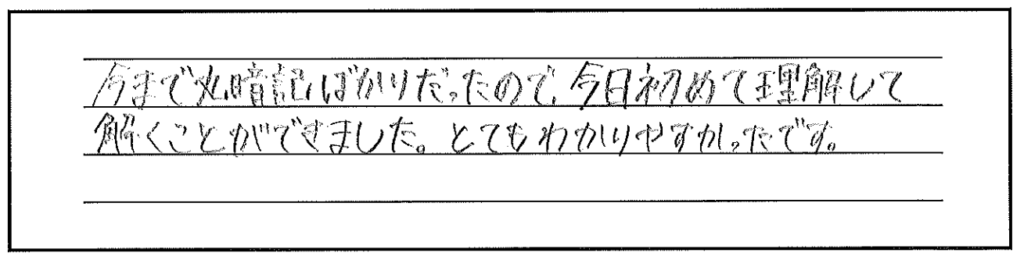 今まで丸暗記ばかりだったので、今日初めて理解して
解くことができました。とてもわかりやすかったです。